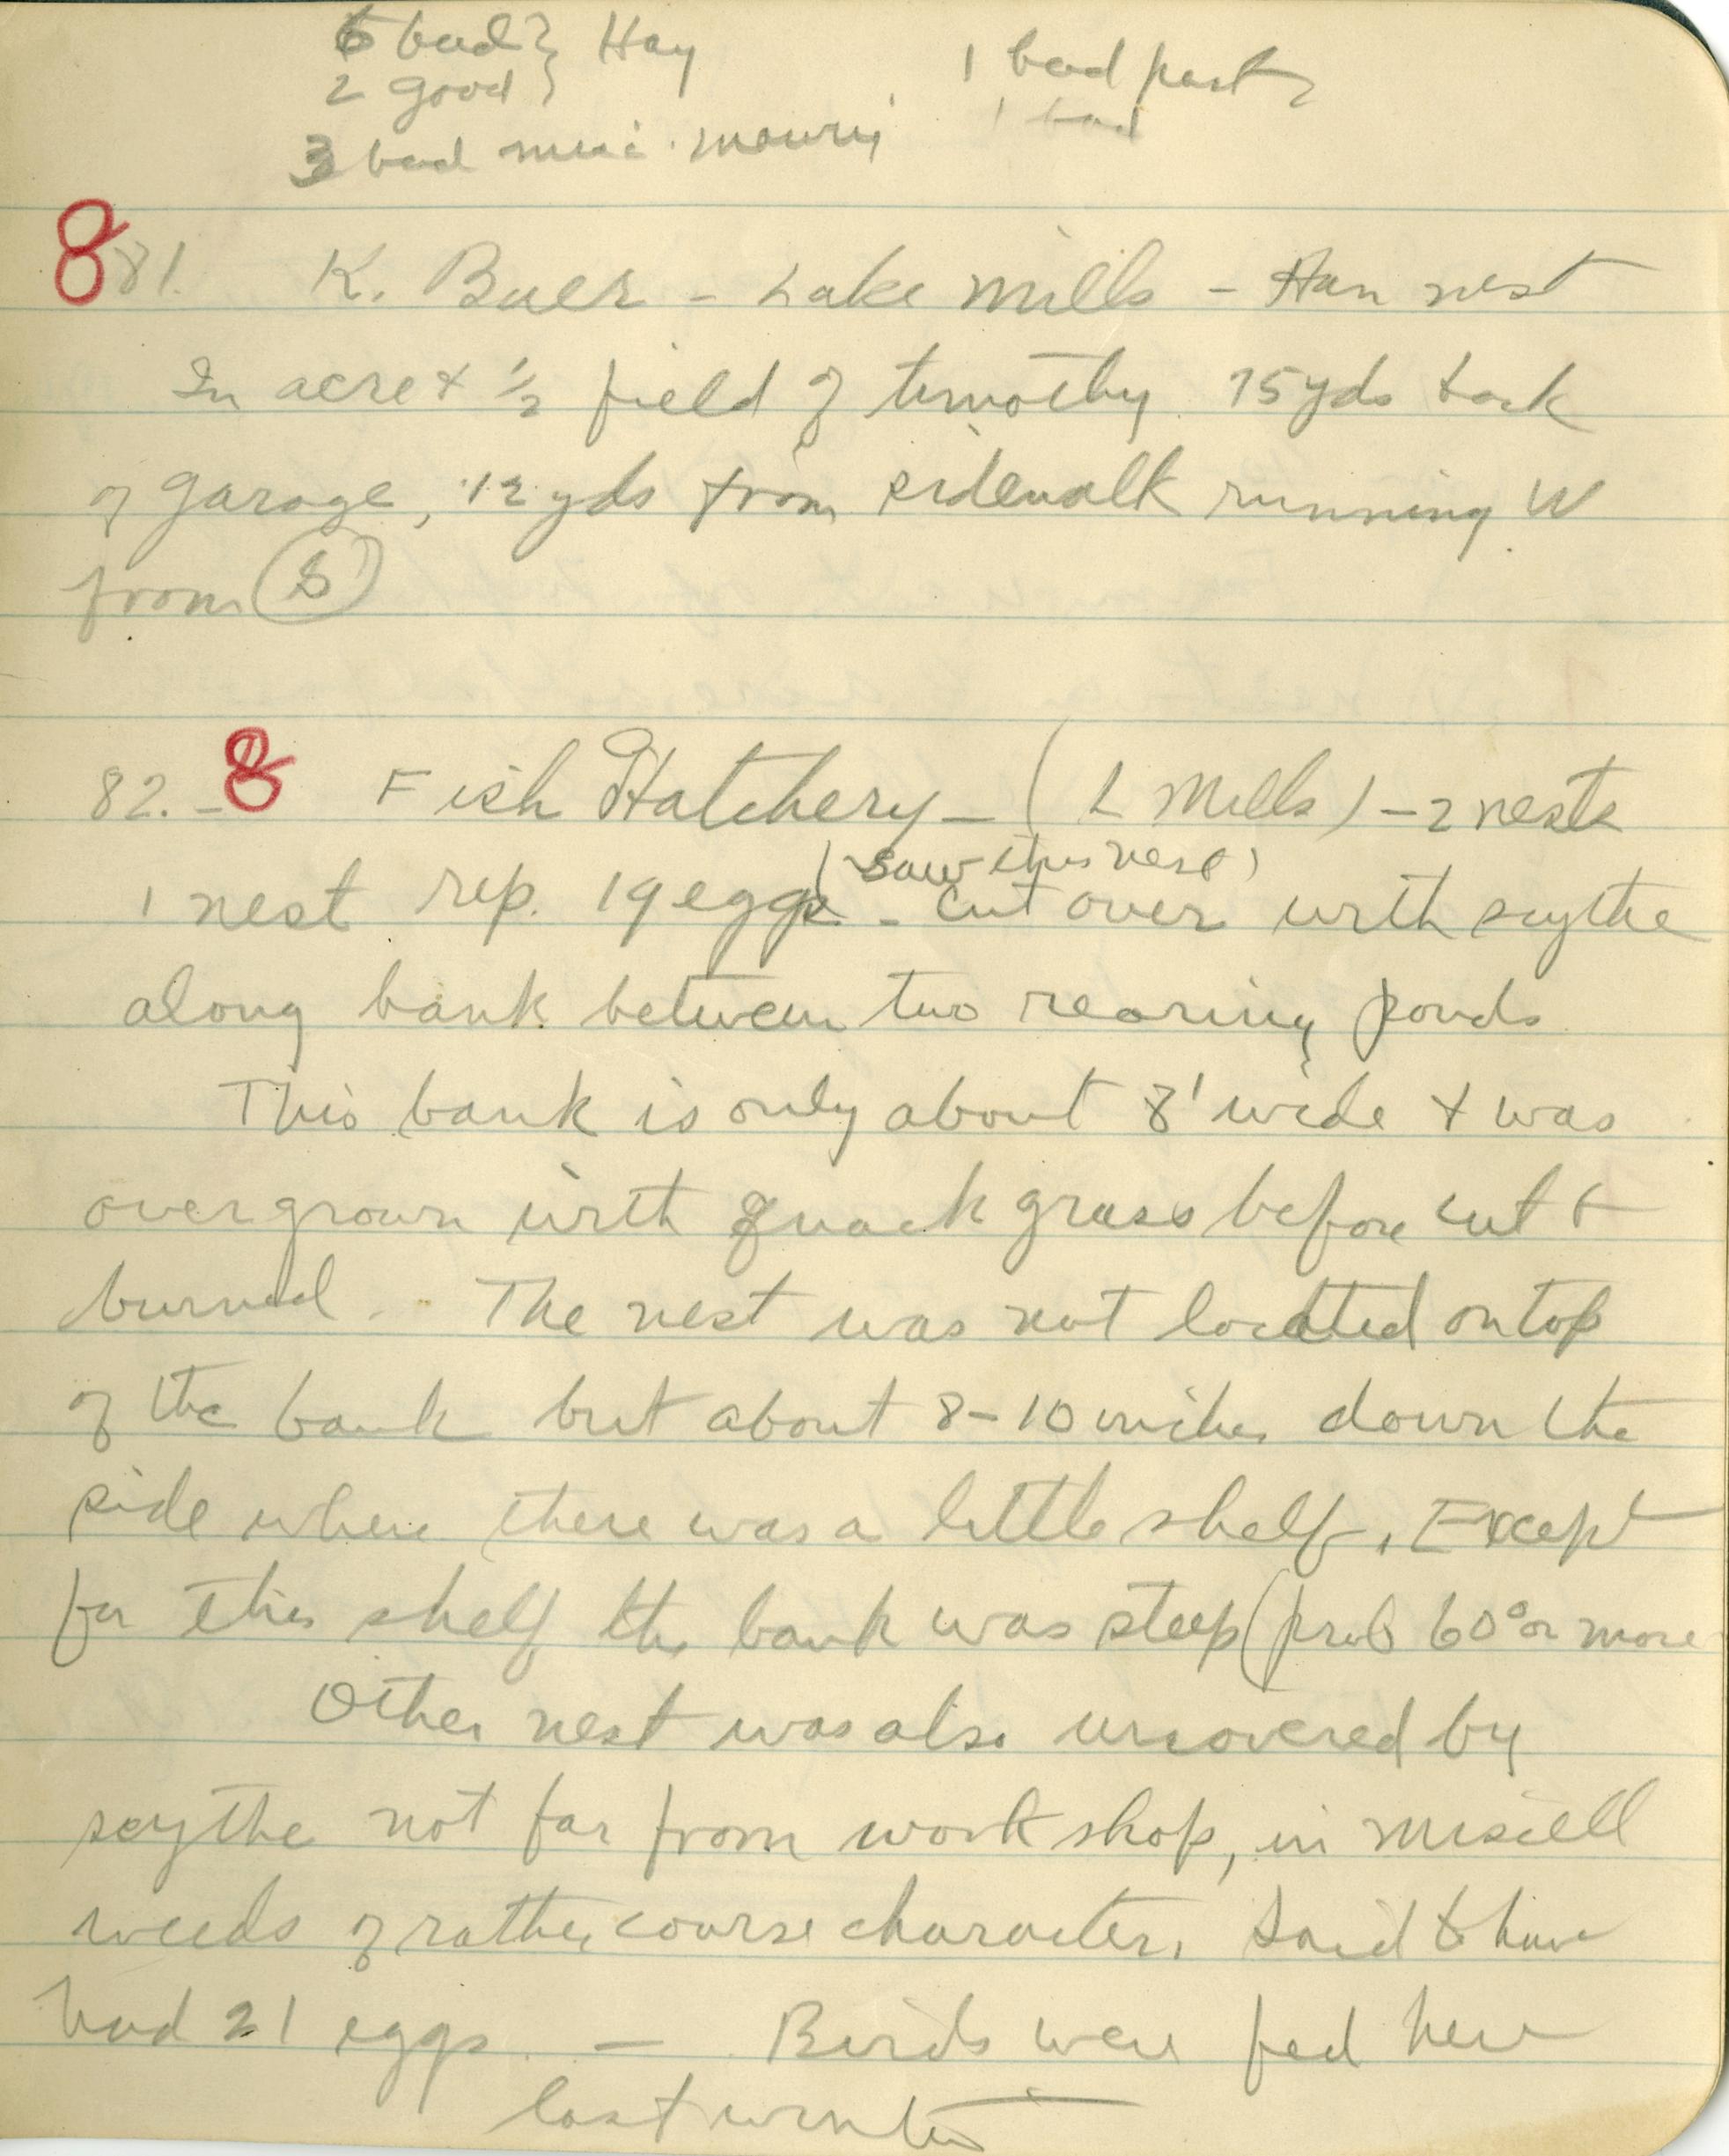 6 bad } Hay
2 good }
1 bad past
1 bad
3 bad misc. mowing
8 81. K. Baer - Lake Mills - Hun nest
In acre + 1/2 field of timothy 75 yds back
of garage, 12 yds from sidewalk running W
from S
82. - 8 Fish Hatchery - (L Mills) - 2 nests
(saw this nest)
1 nest rep. 19 eggs - cut over with scythe
along bank between two rearing ponds
This bank is only about 8' wide + was
overgrown with quack grass before cut +
burned. The nest was not located on top
of the bank but about 8-10 inches down the
side where there was a little shelf. Except
for this shelf the bank was steep (prob 60° or more
Other nest was also uncovered by
scythe not far from work shop, in miscell
weeds of rather course character. Said to have
had 21 eggs - Birds were fed here
last winter